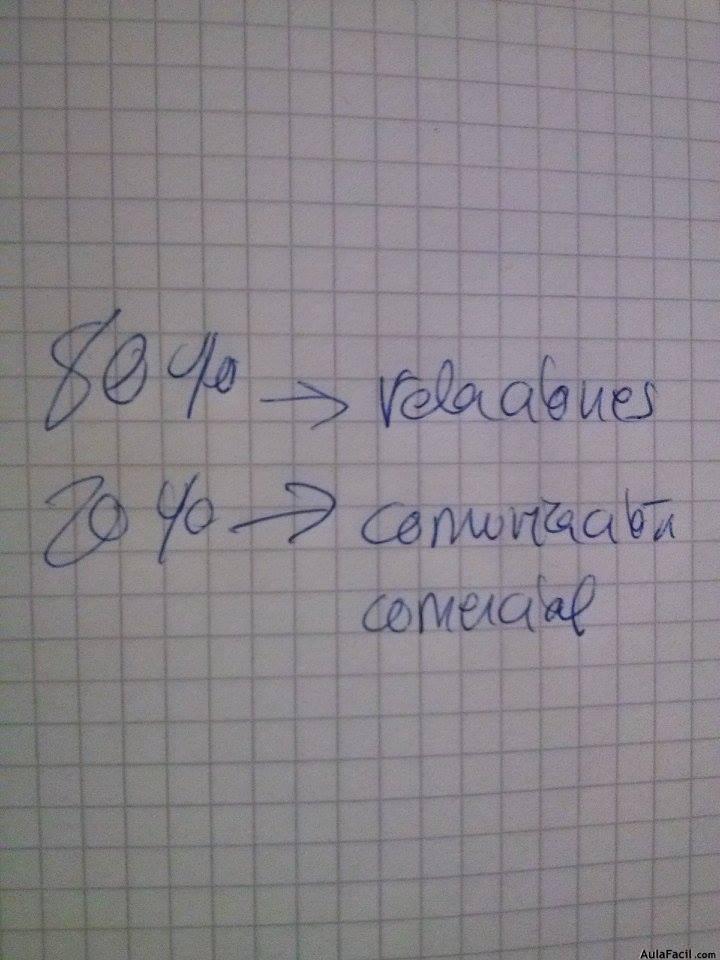 80% → relaciones
20% → comunicación
comercial
AulaFacil.com